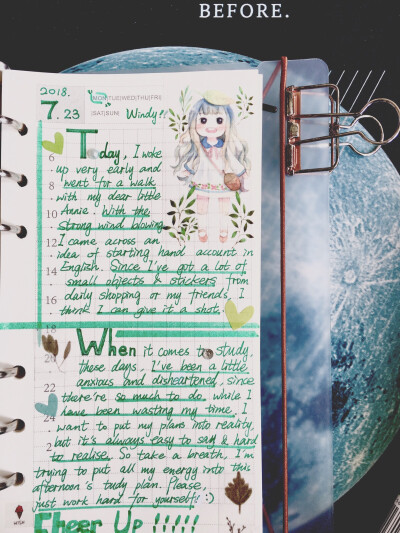 BEFORE.
2018.
MON|TUE|WED|THU|FRI
|SAT|SUN|
7.23
Windy!!
Today, I woke
up very early and
went for a walk
with my dear little
Annie. With the
strong wind blowing
I came across an
idea of starting hand account in
English. Since I've got a lot of
small objects & stickers from
daily shopping or my friends, I
think I can give it a shot.
When it comes to study,
these days, I've been a little
anxious and disheartened, since
there're so much to do. While I
have been wasting my time, I
want to put my plans into reality,
but it's always easy to say & hard
to realise. So take a breath, I'm
trying to put all my energy into this
afternoon's study plan. Please,
just work hard for yourself! :)
Cheer Up !!!!!
6
8
10
12
14
16
18
20
22
24
2
4